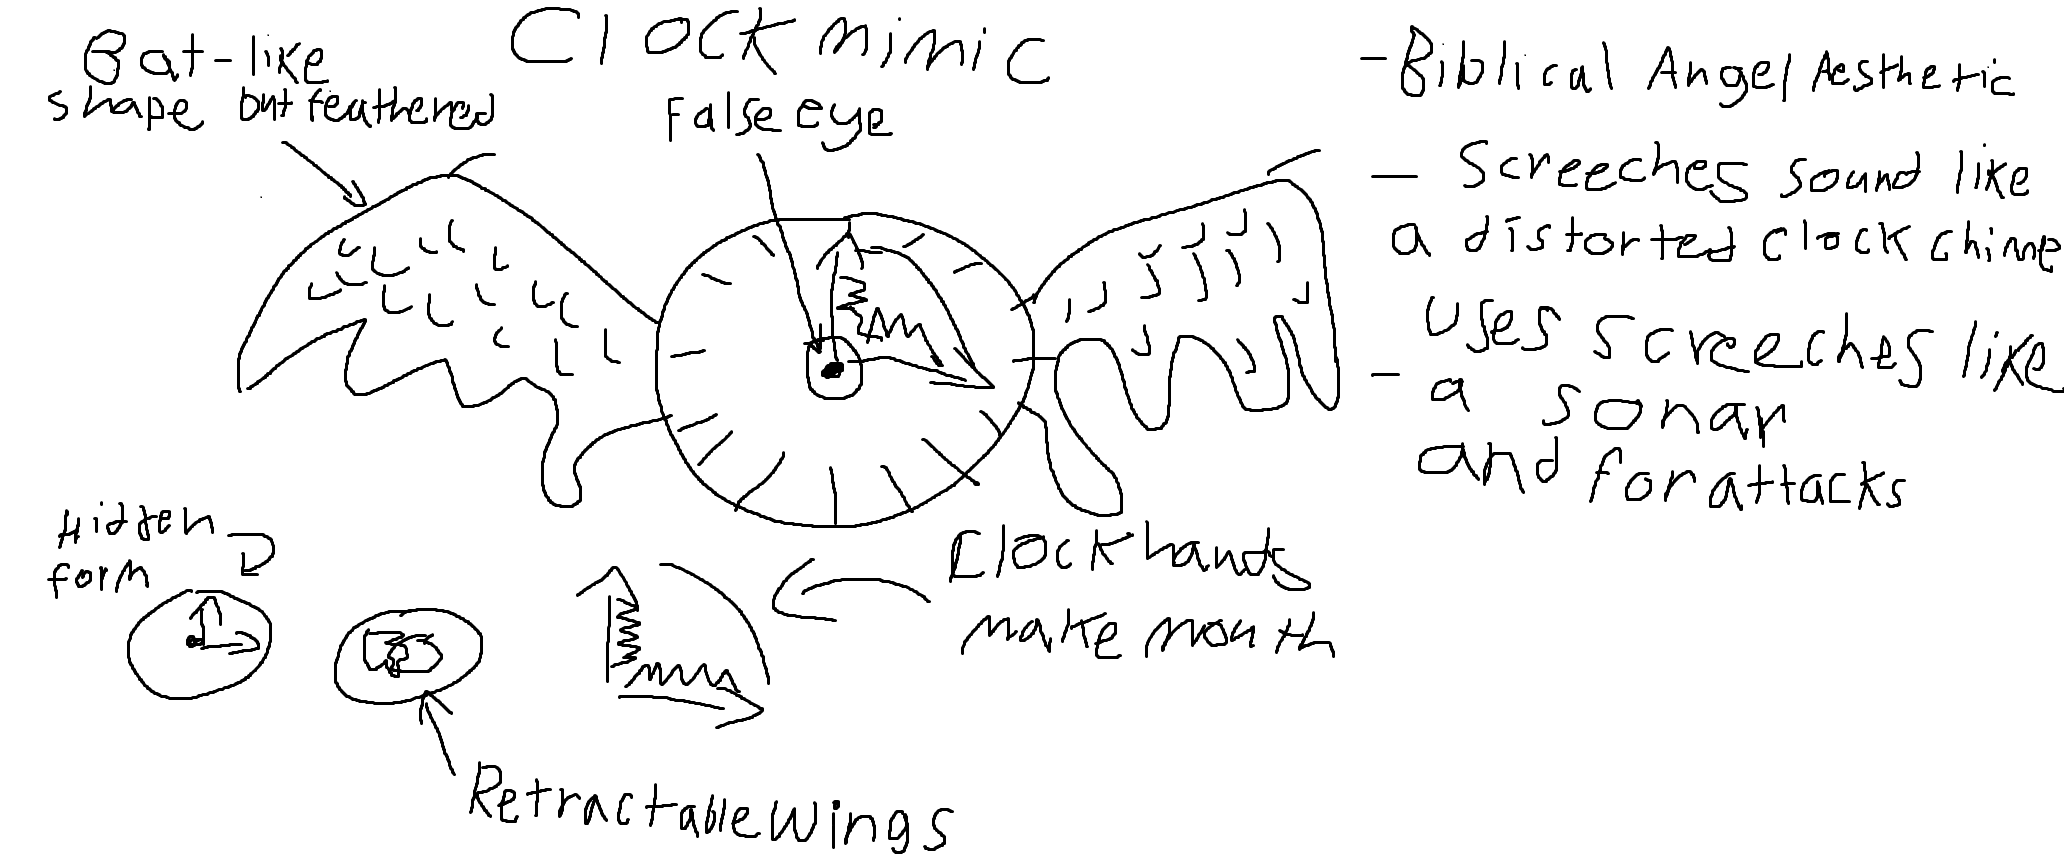 Clock mimic
Bat-like
shape but feathered
False eye
- Biblical Angel Aesthetic
- Screeches sound like
a distorted clock chime
uses screeches like
- a sonar
and for attacks
Hidden
form
Clock hands
make mouth
Retractable wings